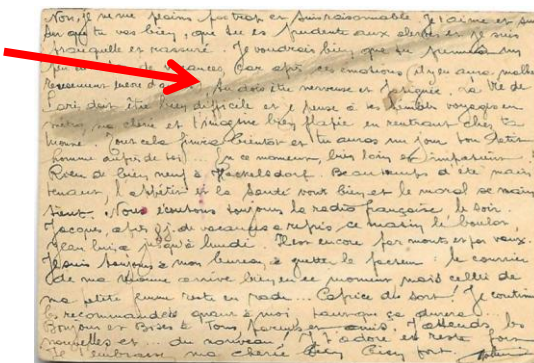 Non, je ne me plains pas trop et suis raisonnable. Je t'aime et suis
sûr que tu vas bien, que tu es prudente aux alertes et je suis
tranquille et rassuré. Je voudrais bien que tu prennes un
peu de vacances. Car après ces émotions (il y en aura malheu
reusement encore d'autres), tu dois être nerveuse et fatiguée. La vie de
Paris doit être bien difficile et je pense à tes voyages en
métro, ma chérie et t'imagine bien en rentrant chez ta
Tout cela finira bientôt et tu auras un jour ton petit
homme auprès de toi... en ce moment, bien loin et impatient.
Rien de bien neuf à Beau temps d'été mais
l'appétit et la santé vont bien et le moral se main
tient. Nous écoutons toujours la radio française le soir.
Jacques, après 8j. de vacances a repris ce matin le boulot,
jusqu'à lundi. encore par monts et par vaux.
Je suis toujours à mon bureau, à guetter le facteur : le courrier
de ma arrive bien en ce moment, mais celui de
ma petite femme reste en rade... Caprice du sort! Je continue
les recommandés quant à moi, pourvu que ça dure...
Bonjour et Bises à Tous, parents et amis. J'attends les
nouvelles et du nouveau! Je t'adore et reste fort
Je t'embrasse ma chérie bien fort